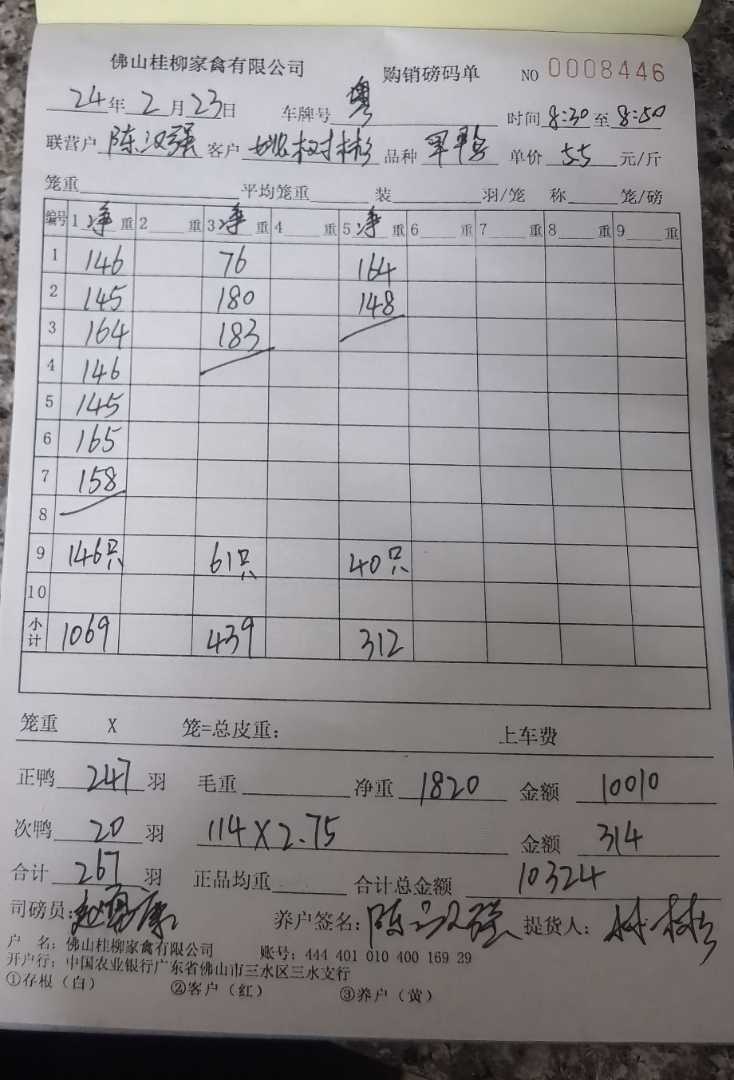 佛山桂柳家禽有限公司 购销磅码单 NO 0008446
24年2月23日 车牌号 粤 时间 8:30 至 8:50
联营户 陈汉强 客户 姚树彬 品种 单价 5.5 元/斤
笼重 平均笼重 装 羽/笼 称 笼/磅
编号 1 净 重 2 重 3 净 重 4 重 5 净 重 6 重 7 重 8 重 9 重
1 146 76 164
2 145 180 148
3 164 183
4 146
5 145
6 165
7 158
8
9 146只 61只 40只
10
小计 1069 439 312
笼重 X 笼=总皮重: 上车费
正鸭 247 羽 毛重 净重 1820 金额 10010
次鸭 20 羽 114×2.75 金额 314
合计 267 羽 正品均重 合计总金额 10324
司磅员: 养户签名: 陈汉强 提货人: 树彬
户 名: 佛山桂柳家禽有限公司 账号: 444 401 010 400 169 29
开户行: 中国农业银行广东省佛山市三水区三水支行
①存根(白) ②客户(红) ③养户(黄)